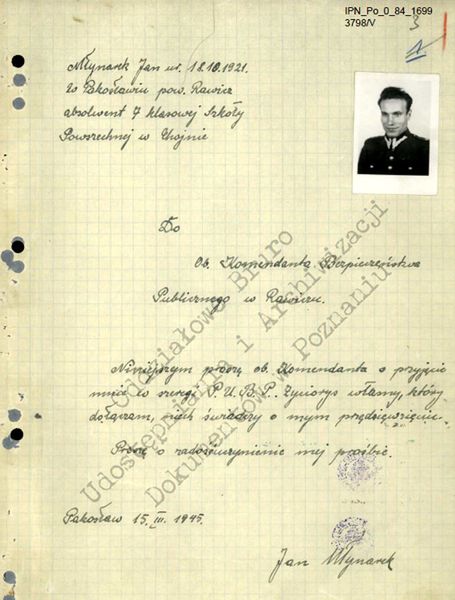 IPN_Po_0_84_1699
3798/V
3
1.
Młynarek Jan ur. 18.10.1921.
w Pakosławiu pow. Rawicz
absolwent 7 klasowej Szkoły
Powszechnej w Chojnie
Do
Ob. Komendanta Bezpieczeństwa
Publicznego w Rawiczu.
Niniejszym proszę ob. Komendanta o przyjęcie
mnie w szeregi P.U.B.P. Życiorys własny, który
dołączam, niech świadczy o mym przedsięwzięciu.
Proszę o zadośćuczynienie mej prośbie.
Pakosław 15. III. 1945.
Jan Młynarek
Oddziałowe Biuro
Udostępniania i Archiwizacji
Dokumentów w Poznaniu